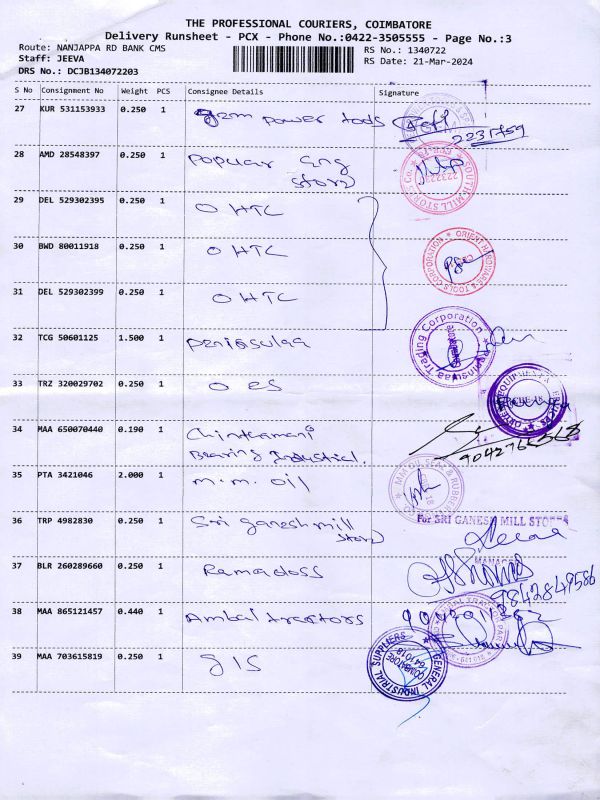 THE PROFESSIONAL COURIERS, COIMBATORE
Delivery Runsheet - PCX - Phone No.:0422-3505555 - Page No.:3
Route: NANJAPPA RD BANK CMS RS No.: 1340722
Staff: JEEVA RS Date: 21-Mar-2024
DRS No.: DCJB134072203
S No Consignment No Weight PCS Consignee Details Signature
27 KUR 531153933 0.250 1 gem power tools
28 AMD 28548397 0.250 1 popular eng
store SOUTH MILL STORES Co.
29 DEL 529302395 0.250 1 OHTC
30 BWD 80011918 0.250 1 OHTC ORIENT HARDWARE & TOOLS CORPORATION
31 DEL 529302399 0.250 1 OHTC
32 TCG 50601125 1.500 1 peninsulaa Peninsulaa Trading Corporation
33 TRZ 320029702 0.250 1 OES ORIENT EQUIPMENT &
34 MAA 650070440 0.190 1 Chindramani
Bearing Industrial.
35 PTA 3421046 2.000 1 m.m. oil MM OIL SEAL & RUBBER
36 TRP 4982830 0.250 1 Sri ganesh mill
store For SRI GANESH MILL STORES
37 BLR 260289660 0.250 1 Ramadoss 9842849586
38 MAA 865121457 0.440 1 Ambal tractors
39 MAA 703615819 0.250 1 GIS GENERAL INDUSTRIAL SUPPLIERS
COIMBATORE
641 018